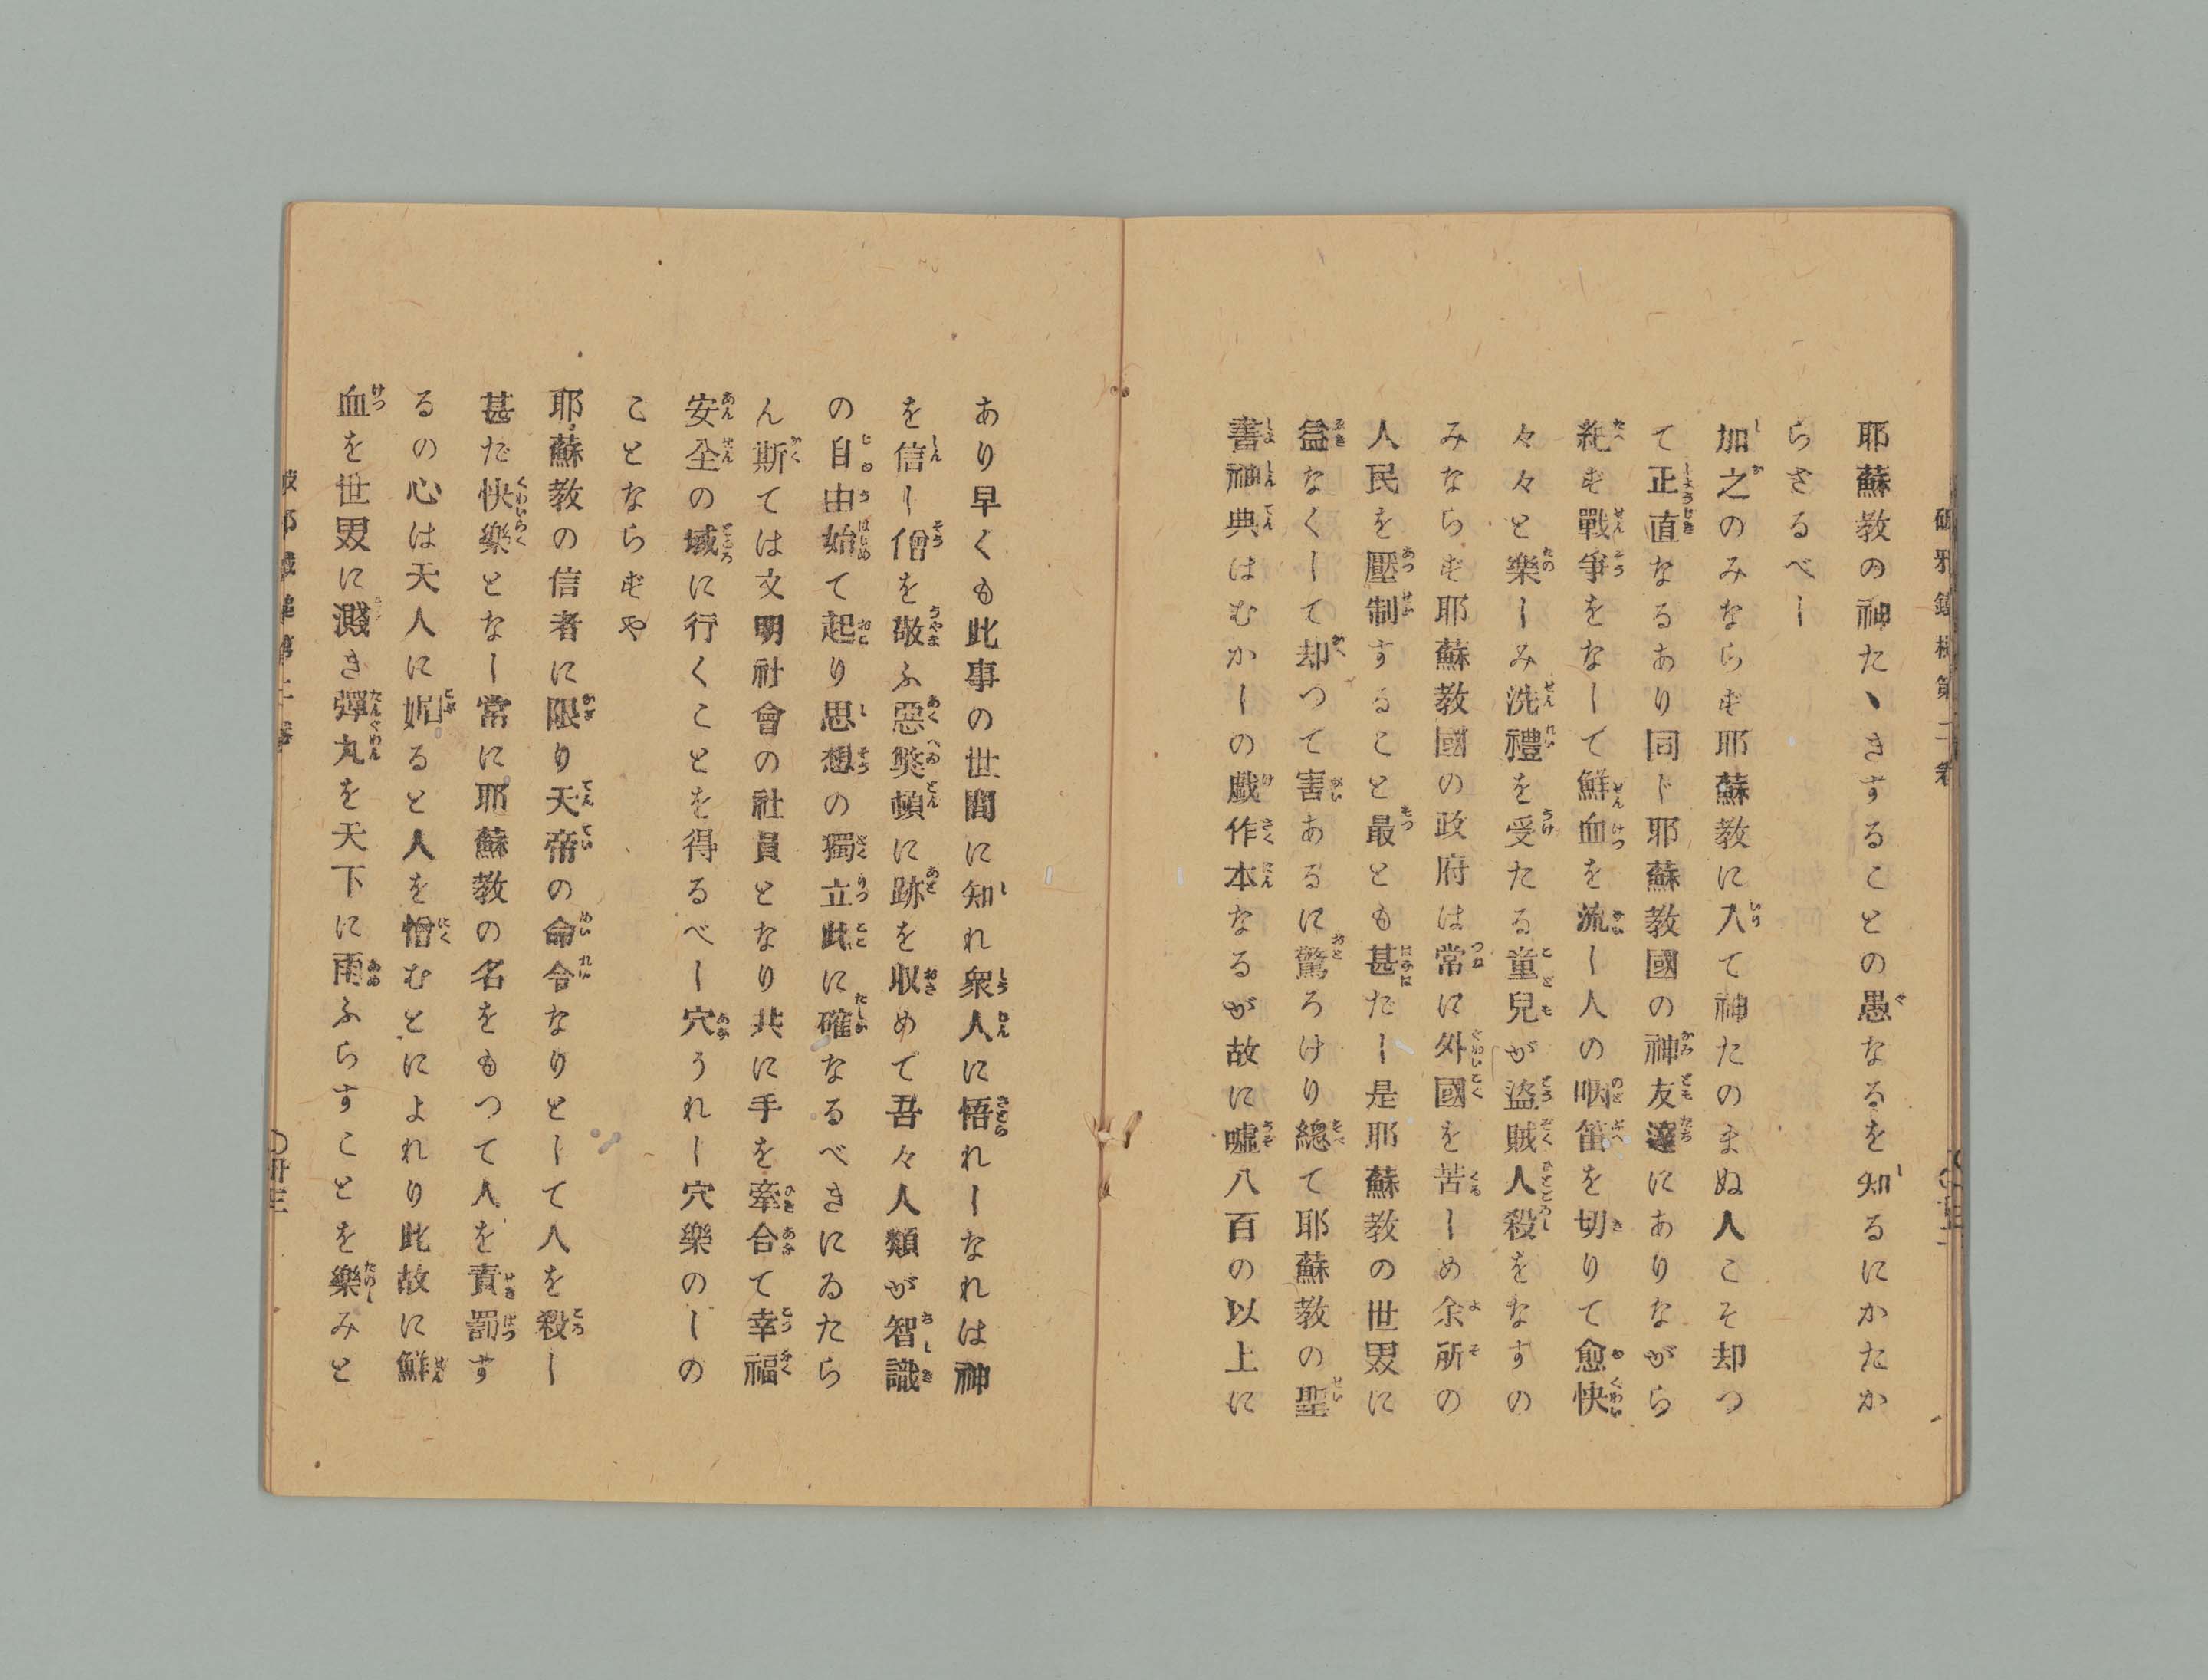 耶蘇教の神たヽきすることの愚なるを知るにかたか
らさるべし
加之のみならず耶蘇教に入て神たのまぬ人こそ却つ
て正直なるあり同じ耶蘇教國の神友達にありながら
絶ず戰爭をなして鮮血を流し人の咽笛を切りて愈快
々々と樂しみ洗禮を受たる童兒が盜賊人殺をなすの
みならず耶蘇教國の政府は常に外國を苦しめ余所の
人民を壓制すること最とも甚だし是耶蘇教の世界に
益なくして却つて害あるに驚ろけり總て耶蘇教の聖
書神典はむかしの戯作本なるが故に嘘八百の以上に
あり早くも此事の世間に知れ衆人に悟れしなれは神
を信し僧を敬ふ惡獘頓に跡を収めて吾々人類が智識
の自由始て起り思想の獨立此に確なるべきにゐたら
ん斯ては文明社會の社員となり共に手を牽合て幸福
安全の域に行くことを得るべし穴うれし穴樂のしの
ことならずや
耶蘇教の信者に限り天帝の命令なりとして人を殺し
甚だ快樂となし常に耶蘇教の名をもつて人を責罰す
るの心は天人に媚ると人を憎むとによれり此故に鮮
血を世界に濺き彈丸を天下に雨ふらすことを樂みと